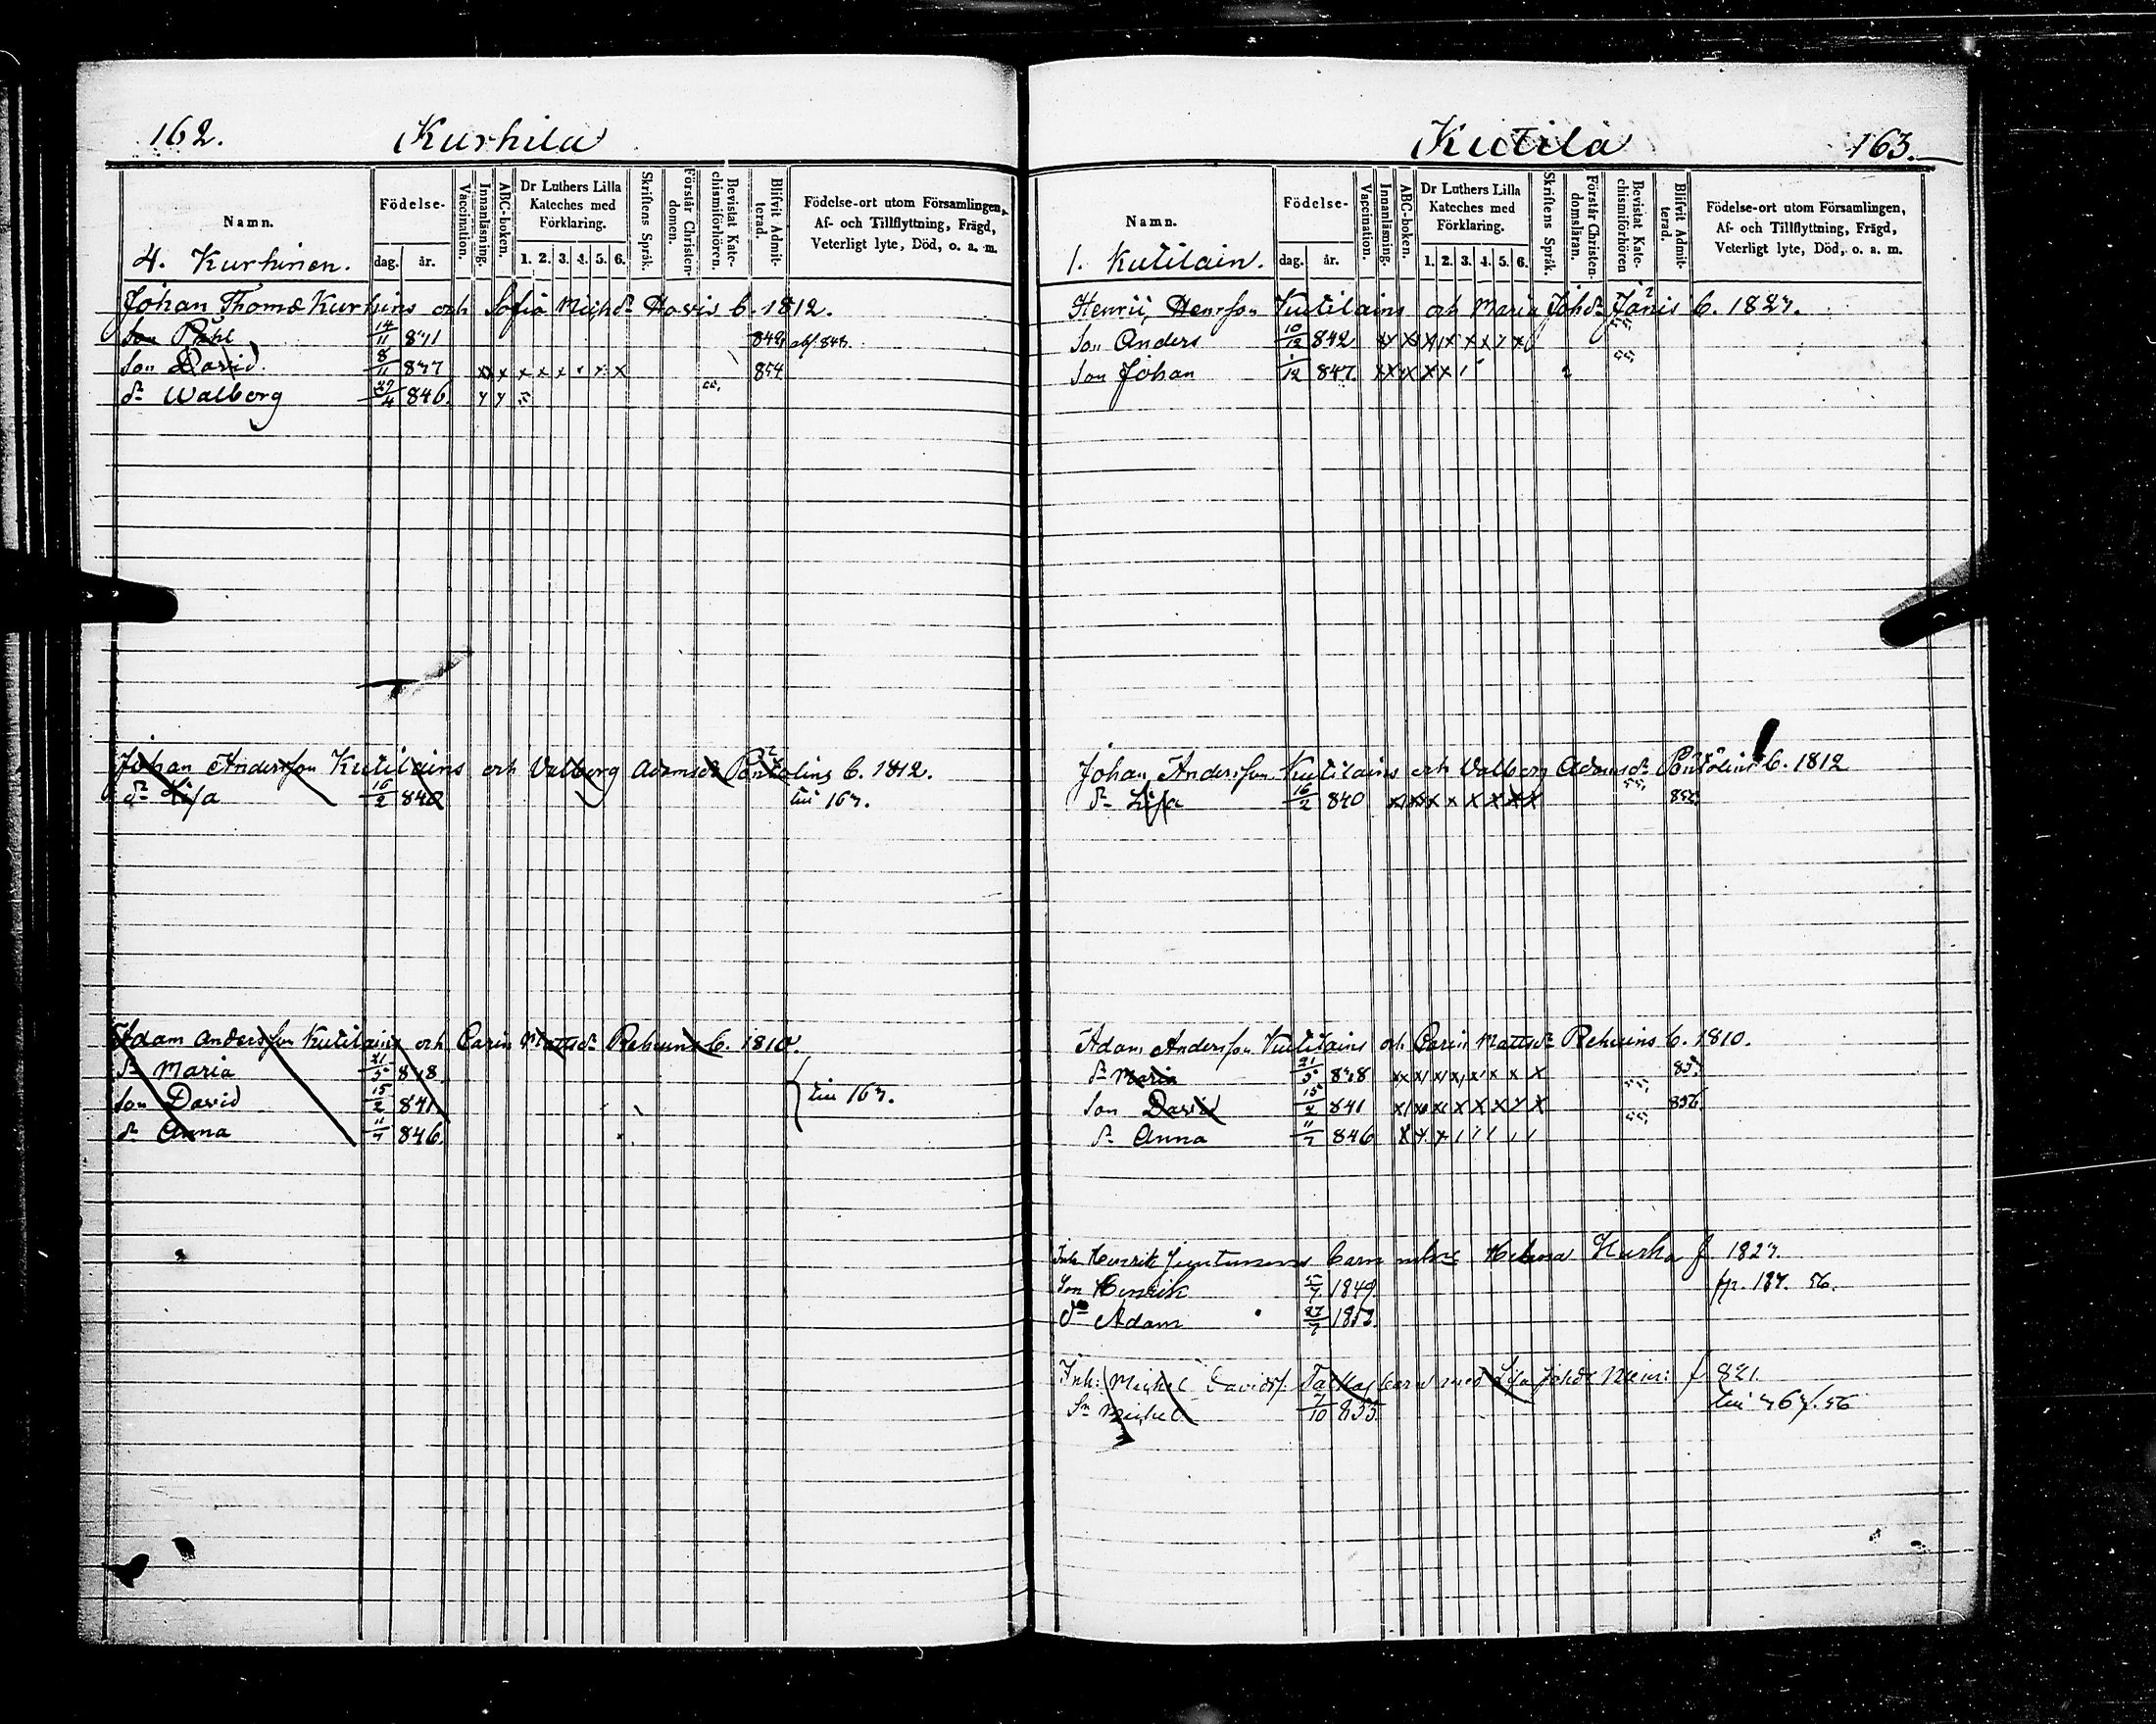 162. Kurhila
Namn.
Födelse-
dag. år.
Vaccination.
Innanläsning.
ABC-boken.
Dr Luthers Lilla Kateches med Förklaring.
1. 2. 3. 4. 5. 6.
Skriftens Språk.
Förstår Christendomen.
Bevistat Katechismiförhören.
Blifvit Admitterad.
Födelse-ort utom Församlingen,
Af- och Tillflyttning, Frägd,
Veterligt lyte, Död, o. a. m.
4. Kurhinen.
Johan Thomæ Kurhins och Sofia 1812.
Son Påhl 14/11 831 849
Son David 8/11 837 x x x x x x x 854
dr Walborg 29/4 846.
Johan Andersson Kutilains och Valborg Adamsdr 6. 1812.
dr Lisa 16/2 840 163.
Adam Andersson Kutilains och Carin Mattsdr Rehuins 6. 1810.
dr Maria 21/5 838
Son David 15/2 841 163.
dr Anna 11/7 846
Kutila 163.
Namn.
Födelse-
dag. år.
Vaccination.
Innanläsning.
ABC-boken.
Dr Luthers Lilla Kateches med Förklaring.
1. 2. 3. 4. 5. 6.
Skriftens Språk.
Förstår Christendomsläran.
Bevistat Katechismiförhören
Blifvit Admitterad.
Födelse-ort utom Församlingen,
Af- och Tillflyttning, Frägd,
Veterligt lyte, Död, o. a. m.
1. Kutilain.
Henrsson Kutilains och Maria Johdr Janis 6. 1823.
Son Anders 10/12 842
Son Johan 1/12 847
Johan Andersson Kutilains och Valborg Adamsdr 6. 1812
dr Lisa 16/2 840
Adam Andersson Kutilains och Carin Mattsdr Rehuins 6. 1810.
dr Maria 21/5 838
Son David 15/2 841 856
dr Anna 11/7 846
Inh. Henrik Juntunens barn Helena Hurka f. 1823.
Son Henrik 5/7 1849. 56.
Adam 27/7 1853.
Inh: Michel Davidss. barn med Lisa Johdr f 821.
Sn Michel 7/10 855. 56